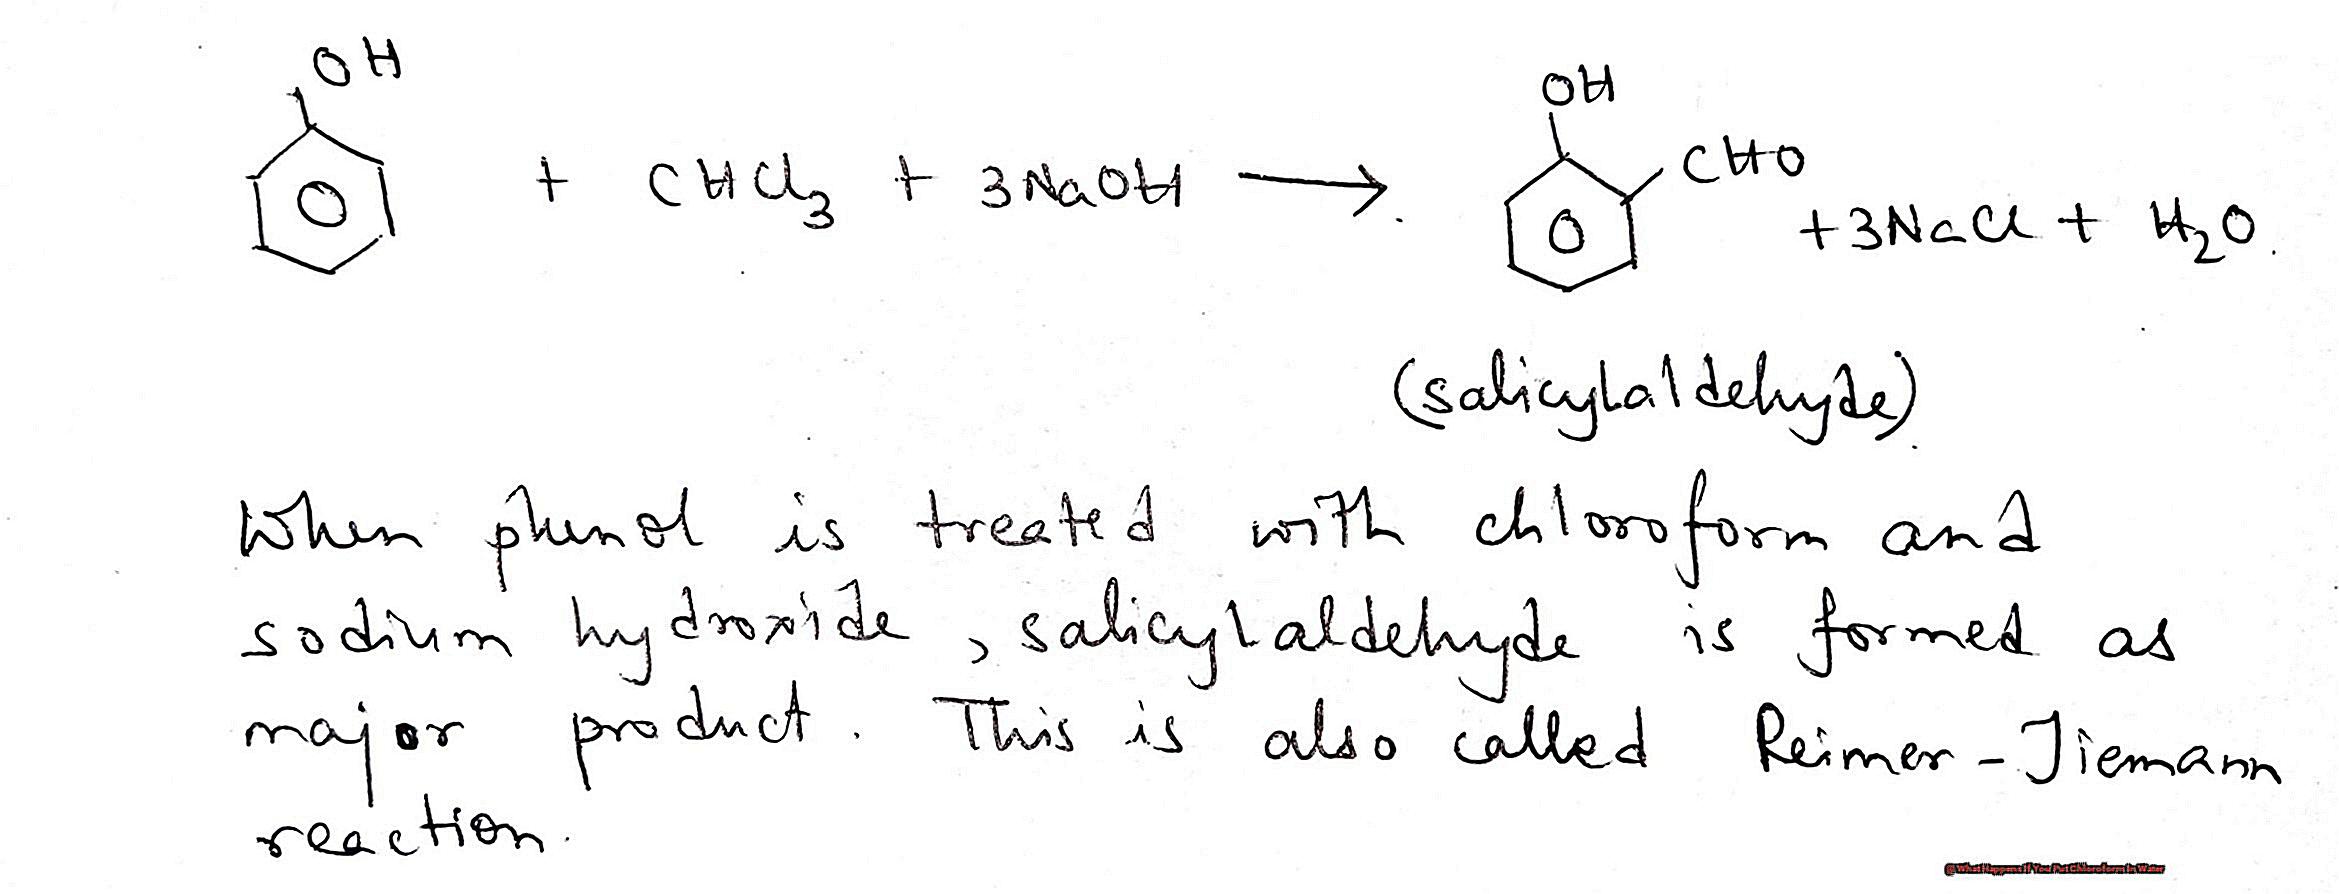 OH
OH
+ CHCl₃ + 3NaOH ⟶
CHO
+3NaCl + H₂O.
(salicylaldehyde)
When phenol is treated with chloroform and
sodium hydroxide, salicylaldehyde is formed as
major product. This is also called Reimer-Tiemann
reaction.
@WhatHappensIfYouPutChloroformInWater